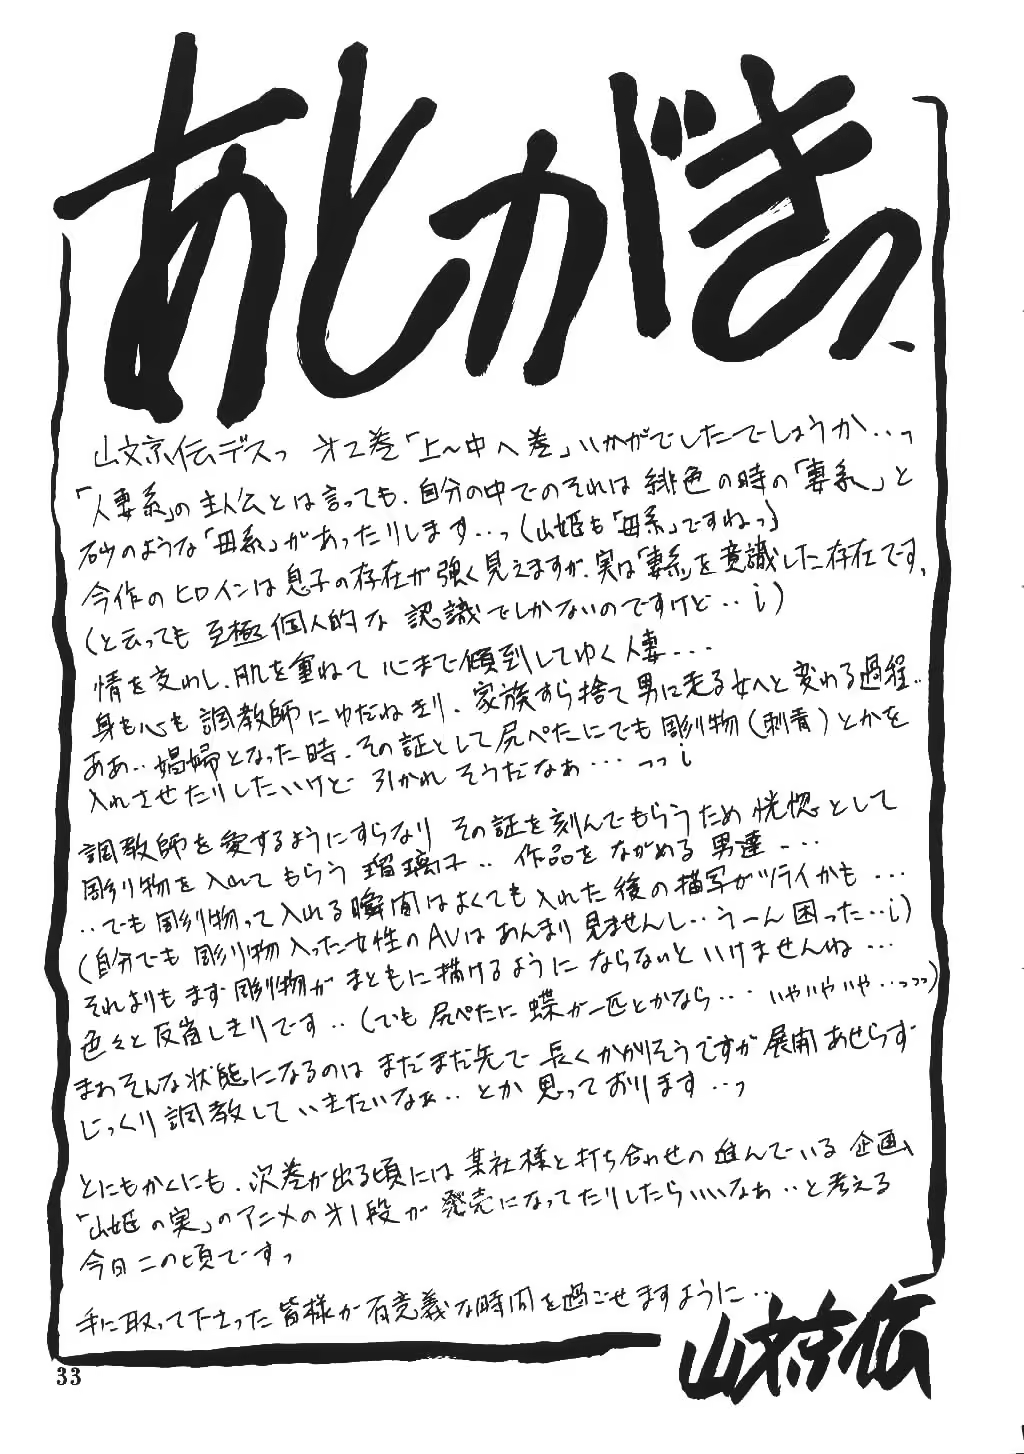 あとがきっ、
山文京伝デスっ 才2巻「上～中へ巻」いかがでしたでしょうか‥っ
「人妻系」の主人公とは言っても、自分の中でのそれは 緋色の時の「妻系」と
砂のような「母系」があったりします‥っ(山姫も「母系」ですねっ)
今作のヒロインは息子の存在が強く見えますが、実は「妻系」を意識した存在です、
(と云っても 至極個人的な 認識でしかないのですけど‥i)
情を交わし、肌を重ねて 心まで傾倒してゆく人妻‥‥
身も心も 調教師にゆだねきり、家族すら捨て 男に走る女へと 変わる過程‥
ああ‥娼婦となった時、その証として尻ぺたにでも 彫り物(刺青)とかを
入れさせたりしたいけど 引かれ そうだなぁ‥‥ っっi
調教師を愛するようにすらなり その証を刻んでもらうため 恍惚として
彫り物を 入れて もらう 瑠璃子‥ 作品を ながめる 男達‥‥
‥でも 彫り物って 入れる瞬間はよくても入れた後の描写がツライかも‥‥
(自分でも 彫り物入った女性のAVはあんまり見ませんし‥うーん困った‥i)
それよりもまず彫り物が まともに描けるように ならないと いけませんね‥‥
色々と反省しきりです‥(でも 尻ぺたに 蝶が一匹とかなら‥‥ いやいやいや‥っっっ)
まわそんな状態になるのは まだまだ先で 長くかかりそうですが 展開 あせらず
じっくり調教していきたいなぁ‥とか 思っております‥っ
とにもかくにも、次巻が出る頃には 某社様と打ち合わせの 進んでいる 企画、
「山姫の実」のアニメの才1段が 発売になってたりしたらいいなぁ‥と考える
今日この頃ですっ
手に取って下さった皆様が有意義な時間を過ごせますように‥
山文京伝
33